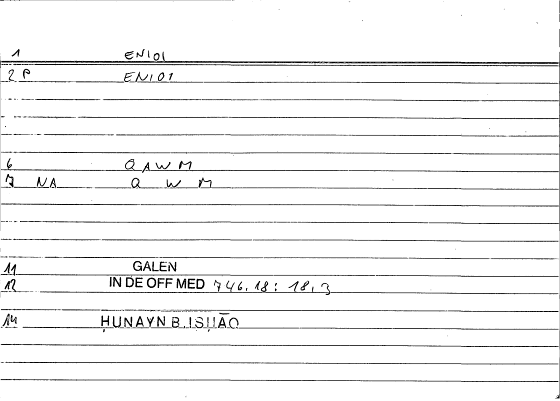 1 EN101
2 P EN101
6 Q A W M
7 NA Q W M
11 GALEN
12 IN DE OFF MED 746.18: 18,3
14 ḤUNAYN B. ISḤĀQ